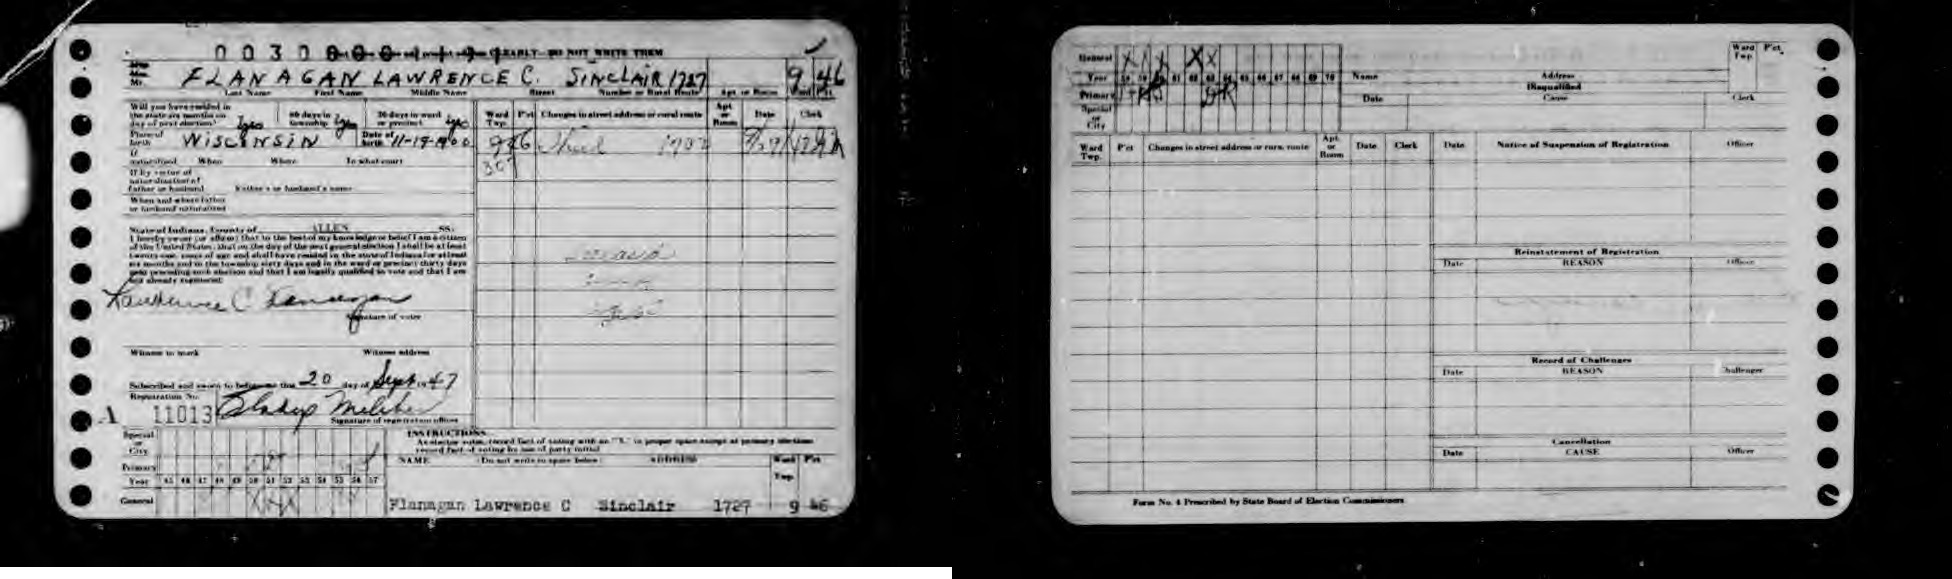 CLEARLY—DO NOT WRITE THEM
Mr. FLANAGAN LAWRENCE C. SINCLAIR 1727 9 46
Last Name First Name Middle Name Street Number or Rural Route Apt. or Room
Will you have resided in the state six months on day of next election? yes 60 days in township yes 30 days in ward or precinct yes
Place of birth WISCONSIN Date of birth 11-19-1900
If naturalized When Where In what court
If by virtue of naturalization of father or husband Father's or husband's name
When and where father or husband naturalized
Ward Twp. P'ct Changes in street address or rural route Apt. or Room Date Clerk
State of Indiana, County of ALLEN SS:
I hereby swear (or affirm) that to the best of my knowledge or belief I am a citizen
of the United States; that on the day of the next general election I shall be at least
twenty-one years of age and shall have resided in the state of Indiana for at least
six months and in the township sixty days and in the ward or precinct thirty days
next preceding such election and that I am legally qualified to vote and that I am
not already registered.
Lawrence C Flanagan
Signature of voter
Witness to mark Witness address
Subscribed and sworn to before me this 20 day of Sept 1947
Registration No.
A 11013 Gladys
Signature of registration officer
Special or City
Primary
Year 45 46 47 48 49 50 51 52 53 54 55 56 57
General
INSTRUCTIONS
As elector votes, record fact of voting with an "X" in proper space except at primary elections
record fact of voting by use of party initial
NAME (Do not write in space below) ADDRESS Ward Twp. P'ct
Flanagan Lawrence C Sinclair 1727 9 46
General X X X X X
Year 58 59 60 61 62 63 64 65 66 67 68 69 70
Primary
Special or City
Name Address Ward Twp. P'ct
Disqualified
Date Cause Clerk
Ward Twp. P'ct Changes in street address or rural route Apt. or Room Date Clerk
Date Notice of Suspension of Registration Officer
Reinstatement of Registration
Date REASON Officer
Record of Challenges
Date REASON Challenger
Cancellation
Date CAUSE Officer
Form No. 4 Prescribed by State Board of Election Commissioners